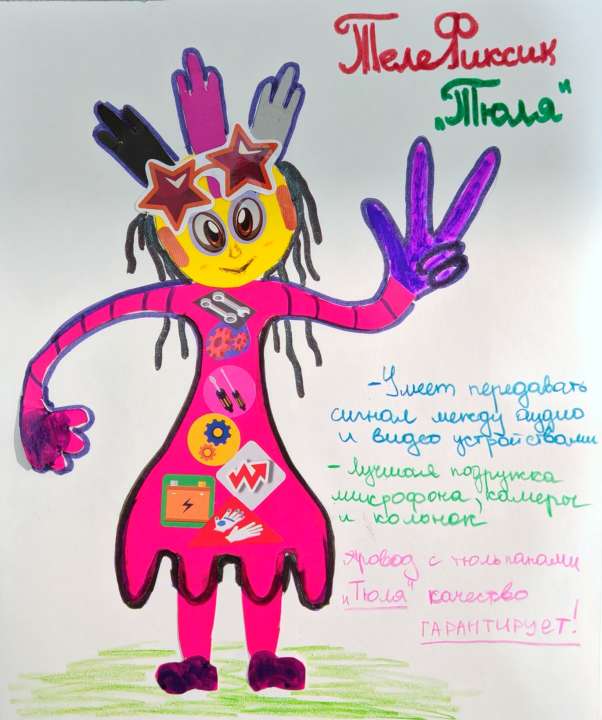 ТелеФиксик
„Тюля"
- Умеет передавать
сигнал между аудио
и видео устройствами
- Лучшая подружка
микрофона, камеры
и колонок
Провод с тюльпанами
„Тюля" качество
ГАРАНТИРУЕТ!